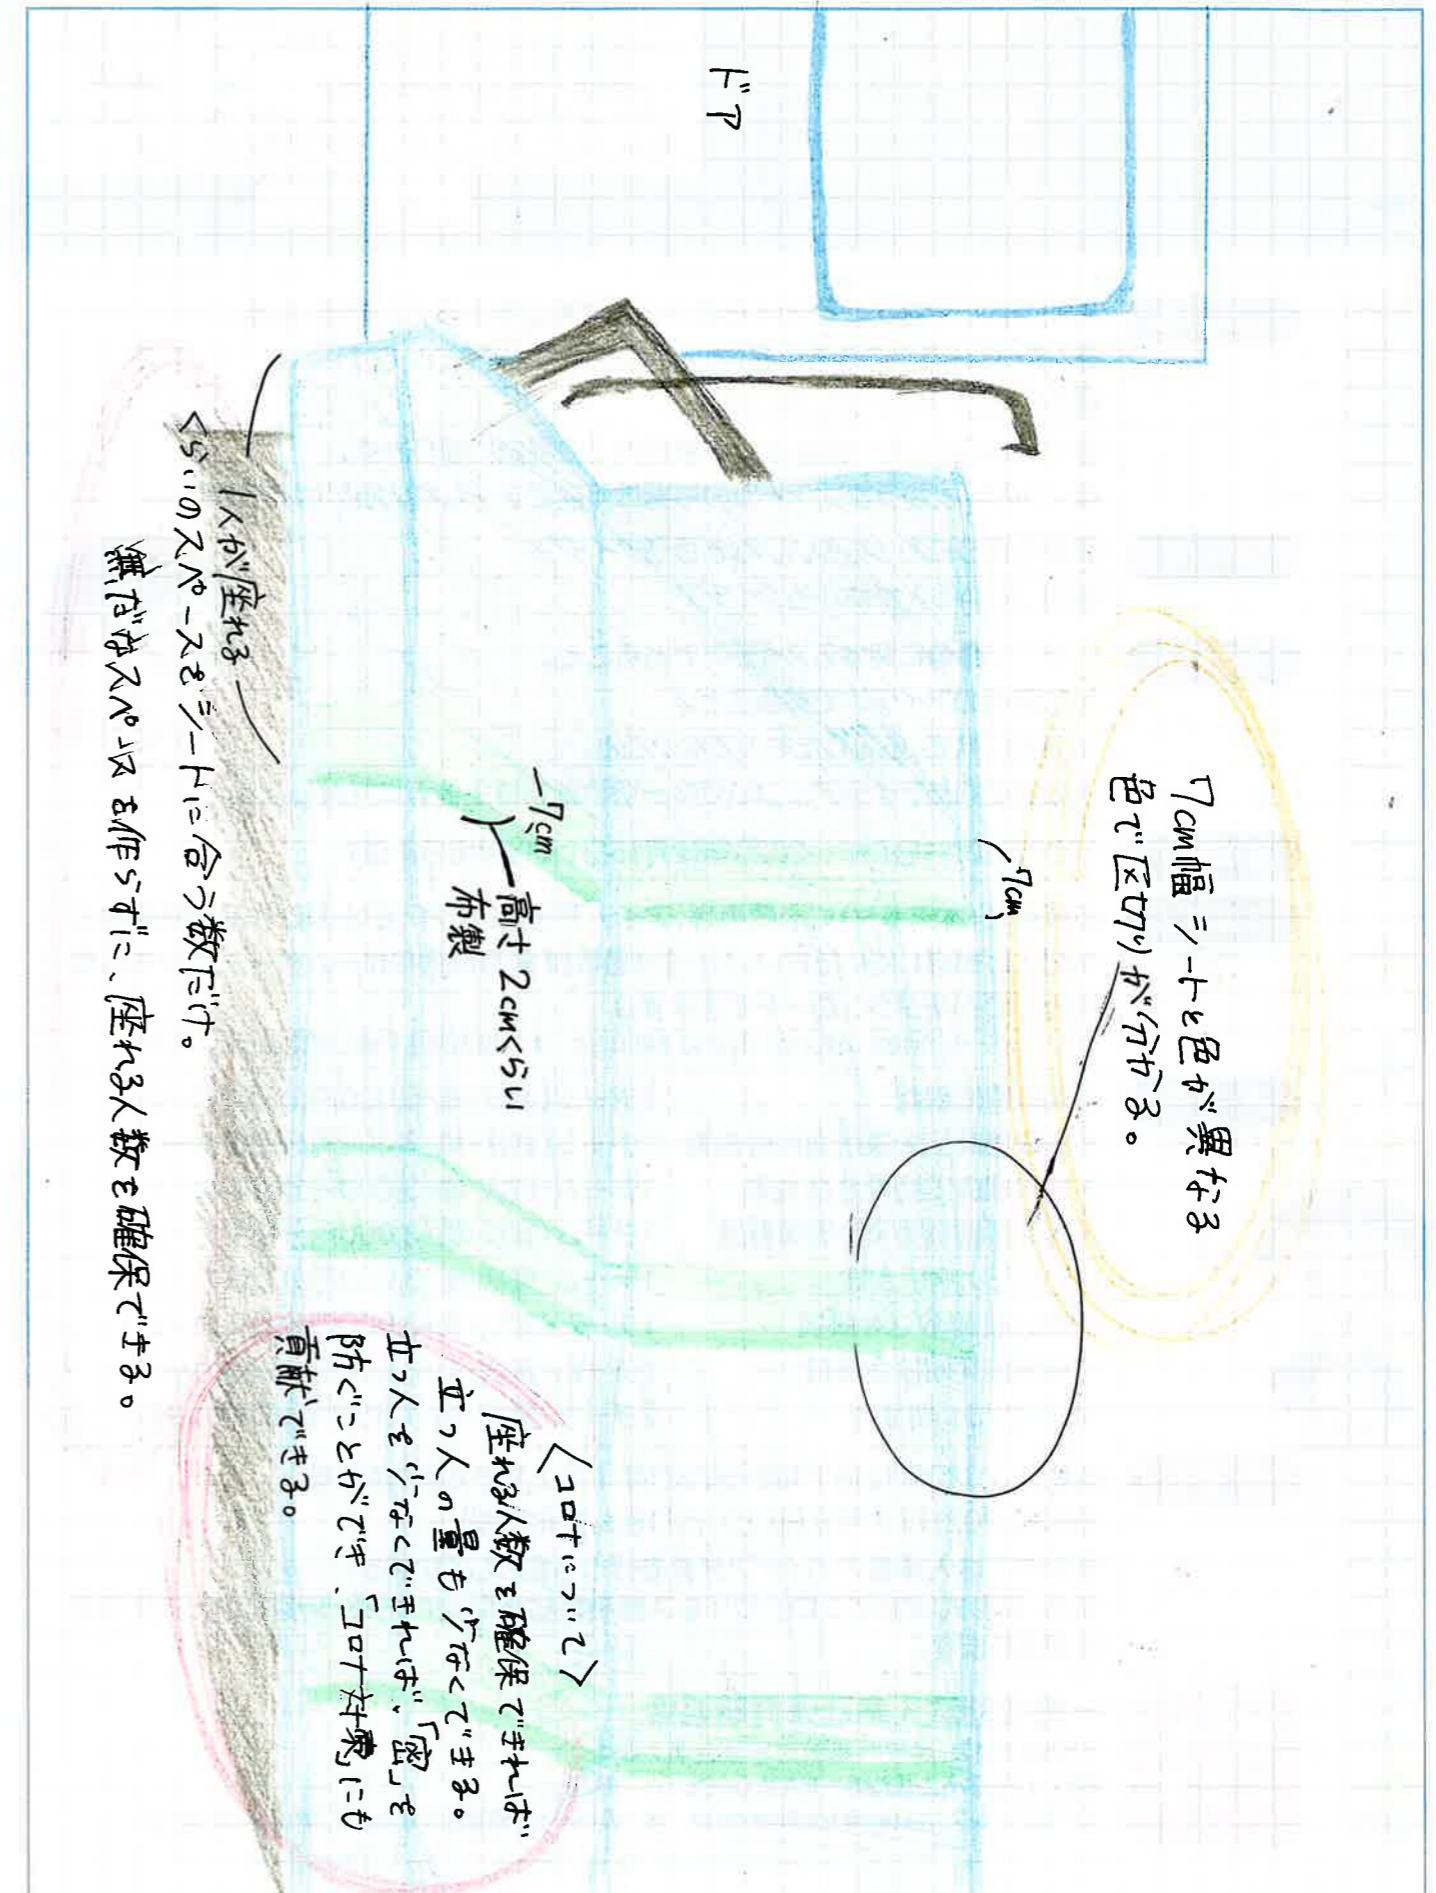 ドア
7cm幅 シートと色が異なる
色で区切りが分かる。
7cm
7cm
高さ2cmくらい
布製
1人が座れる
くらいのスペースをシートに合う数だけ。
無だなスペースを作らずに、座れる人数を確保できる。
〈コロナについて〉
座れる人数を確保できれば
立つ人の量も少なくできる。
立つ人を少なくできれば、「密」を
防ぐことができ、「コロナ対策」にも
貢献できる。